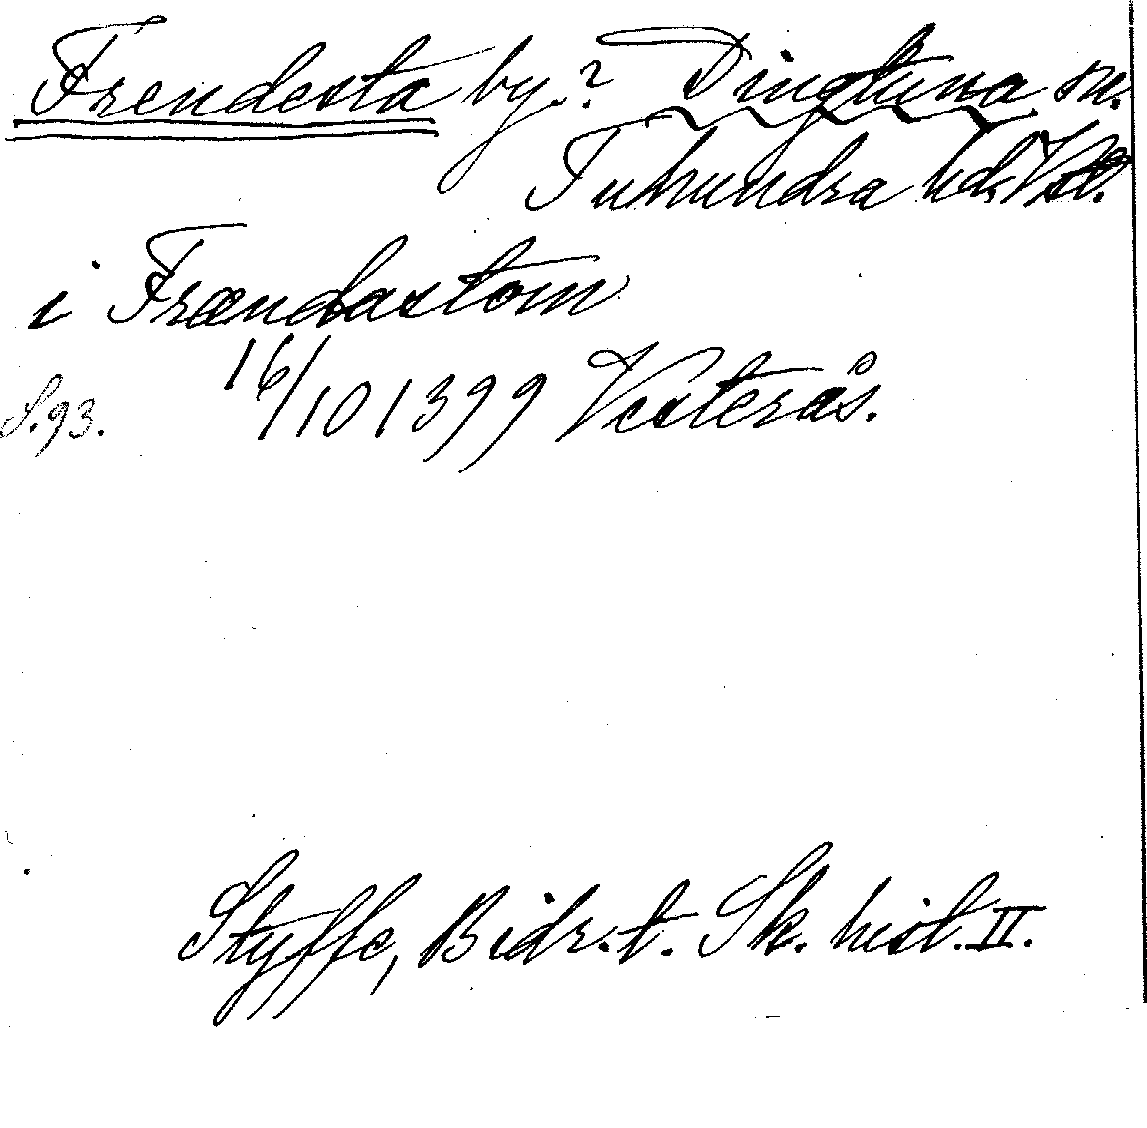 Frendesta by.? Dingtuna sn.
Tuhundra hd. Vstl.
i Frændastom
16/10 1399 Vesterås.
S. 93.
Styffe, Bidr. t. Sk. hist. II.